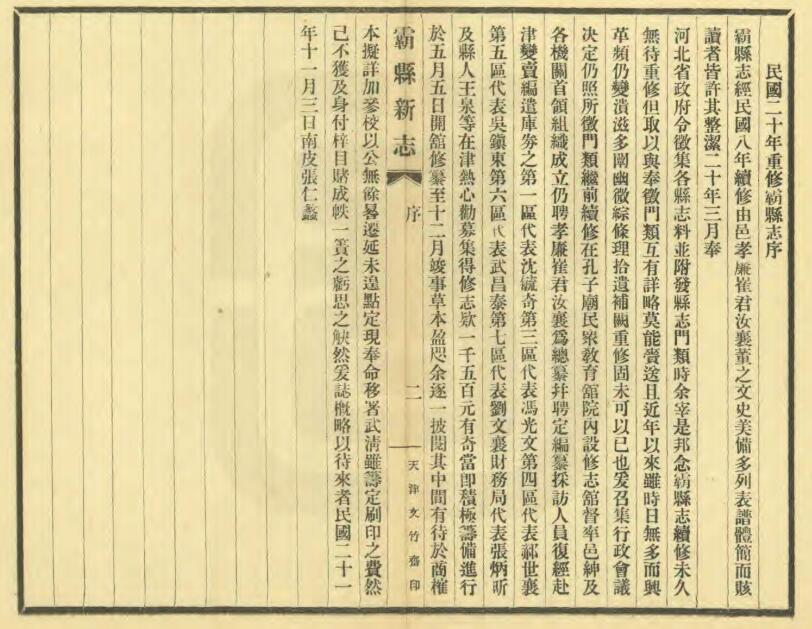 民國二十年重修霸縣志序
霸縣志經民國八年續修由邑孝廉崔君汝襄董之文史美備多列表譜體簡而賅
讀者皆許其整潔二十年三月奉
河北省政府令徵集各縣志料並附發縣志門類時余宰是邦念霸縣志續修未久
無待重修但取以與奉徵門類互有詳略莫能賫送且近年以來雖時日無多而興
革頻仍變潰滋多闡幽微綜條理拾遺補闕重修固未可以已也爰召集行政會議
決定仍照所徵門類繼前續修在孔子廟民衆敎育舘院內設修志舘督率邑紳及
各機關首領組織成立仍聘孝廉崔君汝襄爲總纂幷聘定編纂採訪人員復經赴
津變賣編遣庫劵之第一區代表沈毓奇第三區代表馮光文第四區代表郝世襄
第五區代表吳鎭東第六區代表武昌泰第七區代表劉文襄財務局代表張炳昕
及縣人王泉等在津熱心勸募集得修志欵一千五百元有奇當卽積極籌備進行
於五月五日開舘修纂至十二月竣事草本盈咫余逐一披閱其中間有待於商榷
霸縣新志
序
二
天津文竹齋印
本擬詳加參校以公無餘晷遷延未遑點定現奉命移署武淸雖籌定刷印之費然
己不獲及身付梓目睹成帙一簣之虧思之觖然爰誌槪略以待來者民國二十一
年十一月三日南皮張仁蠡